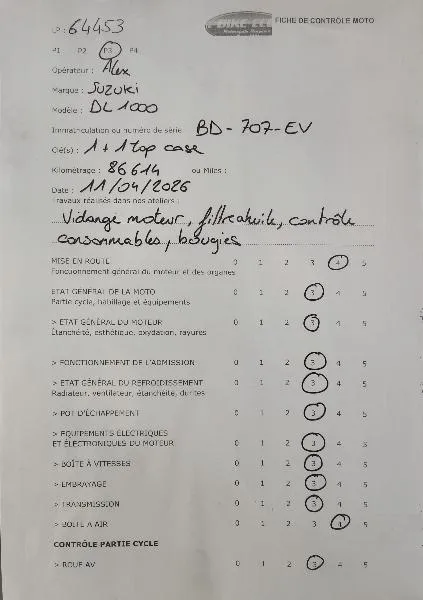 LP : 64453
BIKE-ECO
FICHE DE CONTRÔLE MOTO
P1 P2 P3 P4
Opérateur : Alex
Marque : SUZUKI
Modèle : DL 1000
Immatriculation ou numéro de série BD-707-EV
Clé(s) : 1 + 1 top case
Kilométrage : 86614 ou Miles :
Date : 11/04/2026
Travaux réalisés dans nos ateliers :
Vidange moteur, filtre a huile, contrôle
consommables, bougies
MISE EN ROUTE 0 1 2 3 4 5
Fonctionnement général du moteur et des organes
ETAT GÉNÉRAL DE LA MOTO 0 1 2 3 4 5
Partie cycle, habillage et équipements
> ETAT GÉNÉRAL DU MOTEUR 0 1 2 3 4 5
Étanchéité, esthétique, oxydation, rayures
> FONCTIONNEMENT DE L'ADMISSION 0 1 2 3 4 5
> ETAT GÉNÉRAL DU REFROIDISSEMENT 0 1 2 3 4 5
Radiateur, ventilateur, étanchéité, durites
> POT D'ÉCHAPPEMENT 0 1 2 3 4 5
> EQUIPEMENTS ÉLECTRIQUES
ET ÉLECTRONIQUES DU MOTEUR 0 1 2 3 4 5
> BOÎTE À VITESSES 0 1 2 3 4 5
> EMBRAYAGE 0 1 2 3 4 5
> TRANSMISSION 0 1 2 3 4 5
> BOITE A AIR 0 1 2 3 4 5
CONTRÔLE PARTIE CYCLE
> ROUE AV 0 1 2 3 4 5